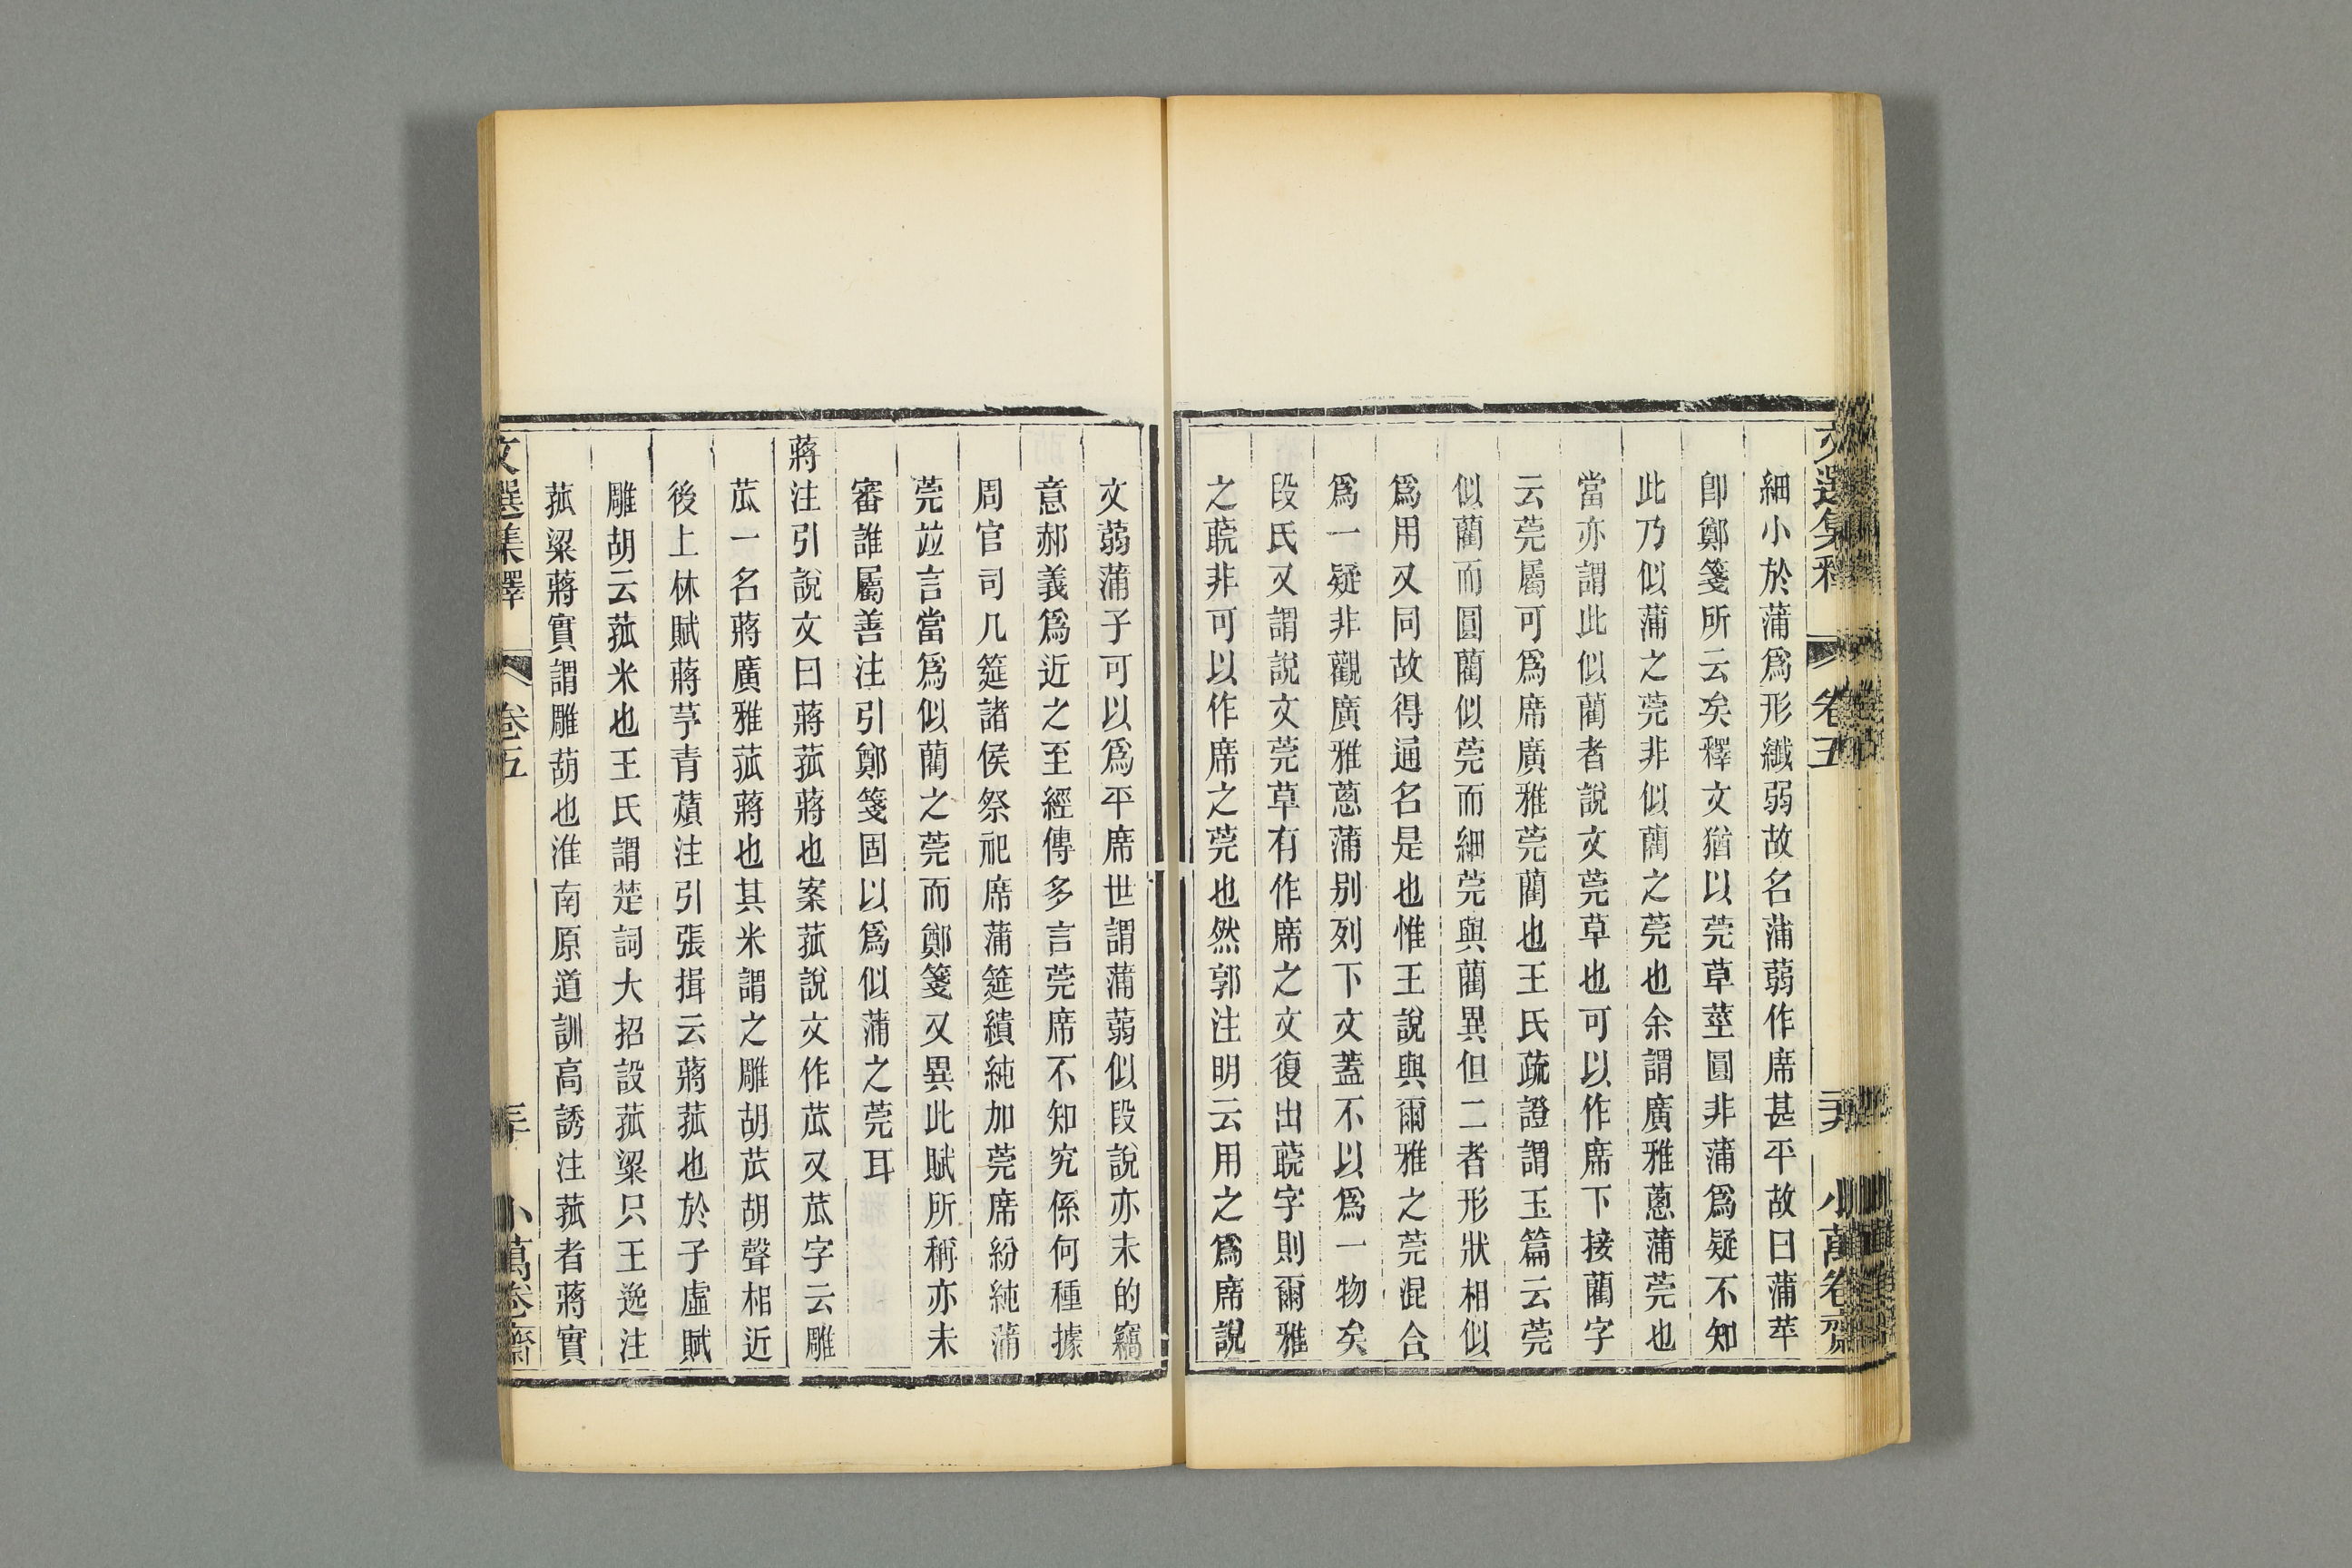 文選集釋 卷五 小萬卷齋
細小於蒲爲形纖弱故名蒲蒻作席甚平故曰蒲苹
卽鄭箋所云矣釋文猶以莞草莖圓非蒲爲疑不知
此乃似蒲之莞非似藺之莞也余謂廣雅蔥蒲莞也
當亦謂此似藺者說文莞草也可以作席下接藺字
云莞屬可爲席廣雅莞藺也王氏疏證謂玉篇云莞
似藺而圓藺似莞而細莞與藺異但二者形狀相似
爲用又同故得通名是也惟王說與爾雅之莞混合
爲一疑非觀廣雅蔥蒲別列下文蓋不以爲一物矣
段氏又謂說文莞草有作席之文復出藈字則爾雅
之藈非可以作席之莞也然郭注明云用之爲席說
文蒻蒲子可以爲平席世謂蒲蒻似段說亦未的竊
意郝義爲近之至經傳多言莞席不知究係何種據
周官司几筵諸侯祭祀席蒲筵繢純加莞席紛純蒲
莞竝言當爲似藺之莞而鄭箋又異此賦所稱亦未
審誰屬善注引鄭箋固以爲似蒲之莞耳
蔣注引說文曰蔣菰蔣也案菰說文作苽又苽字云雕
苽一名蔣廣雅菰蔣也其米謂之雕胡苽胡聲相近
後上林賦蔣芧青薠注引張揖云蔣菰也於子虛賦
雕胡云菰米也王氏謂楚詞大招設菰粱只王逸注
菰粱蔣實謂雕葫也淮南原道訓高誘注菰者蔣實
文選集釋 卷五 三十 小萬卷齋